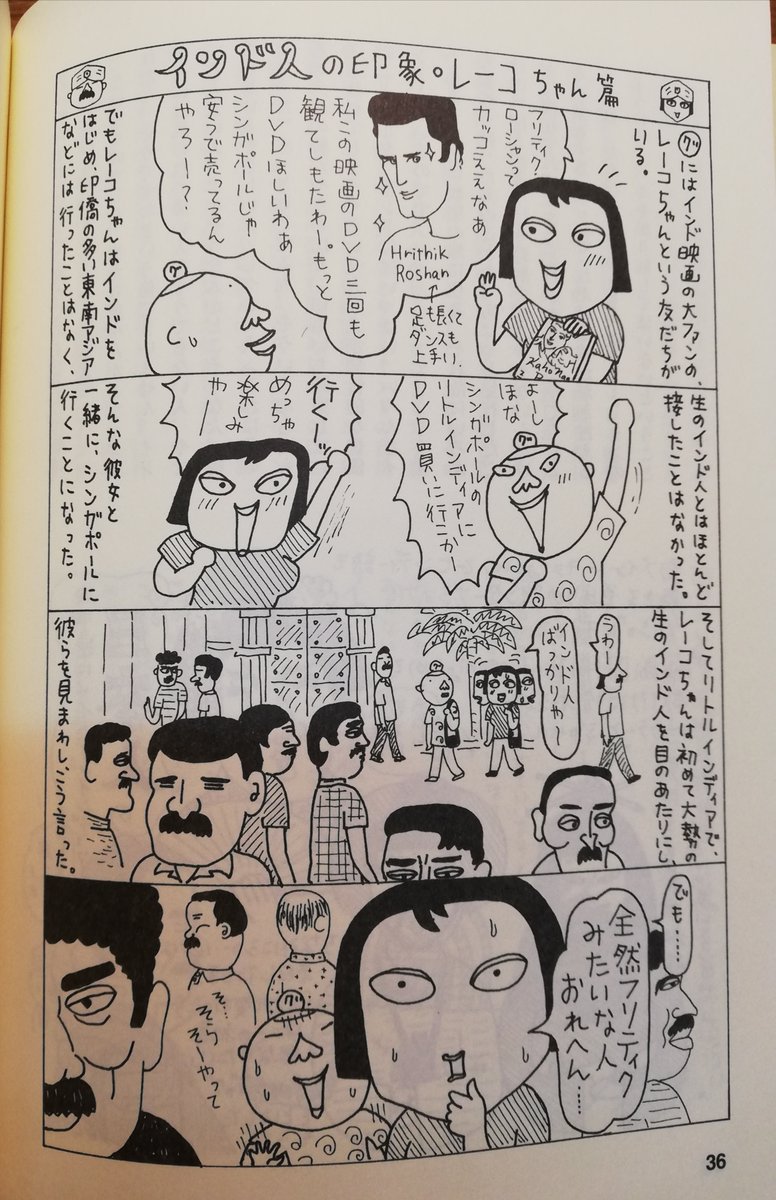 インド人の印象。レーコちゃん篇
グにはインド映画の大ファンの、
レーコちゃんという友だちが
いる。
フリティク・
ローシャンって
カッコええなぁ
私この映画のDVD三回も
観てしもたわー。もっと
DVDほしいわぁ
シンガポールじゃ
安うで売ってるん
やろー?
Hrithik
Roshan
足も長くて
ダンスも
上手い。
グ
Kaho Naa
でもレーコちゃんはインドを
はじめ、印僑の多い東南アジア
などには行ったことはなく、
生のインド人とはほとんど
接したことはなかった。
よーし
ほな
シンガポールの
リトルインディアに
DVD買いに行こかー
グ
行くー!
めっちゃ
楽しみ
やー
そんな彼女と
一緒に、シンガポールに
行くことになった。
そしてリトルインディアで、
レーコちゃんは初めて大勢の
生のインド人を目のあたりにし、
うわー
インド人
ばっかりや~
彼らを見まわし、こう言った。
でも……
全然フリティク
みたいな人
おれへん…
グ
そ…
そら
そーやって
36